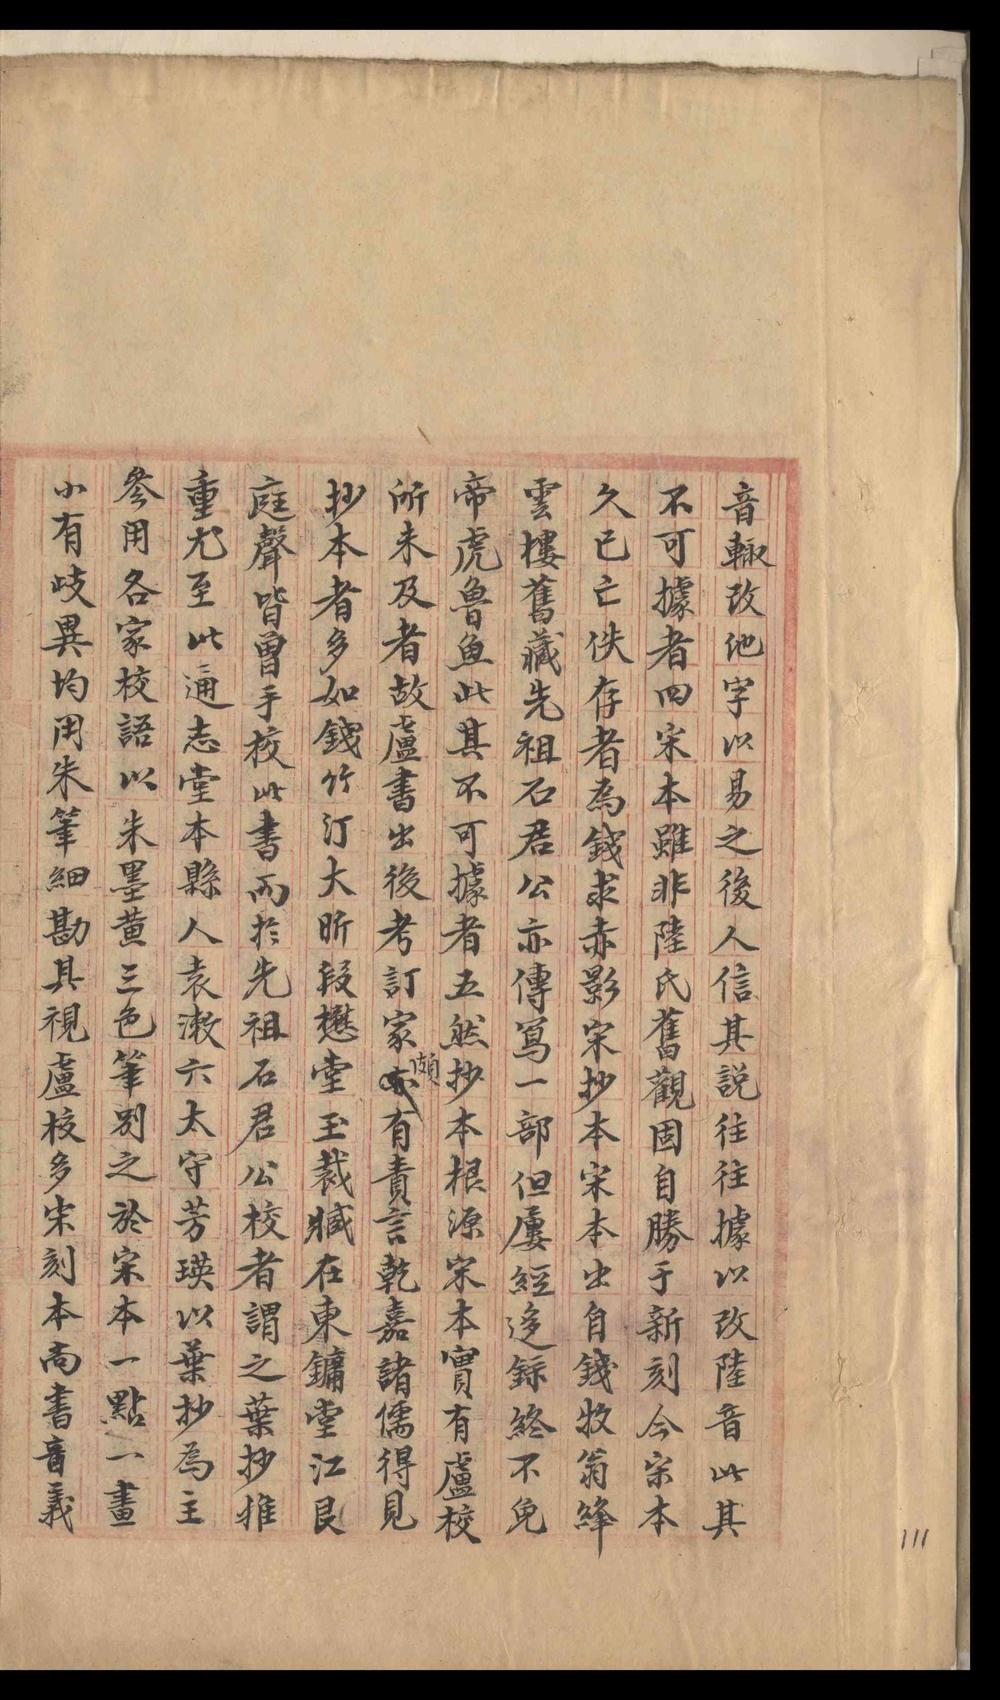 音輙改他字以易之後人信其說往往據以改陸音此其
不可據者四宋本雖非陸氏舊觀固自勝于新刻今宋本
久已亡佚存者為錢求赤影宋抄本宋本出自錢牧翁絳
雲樓舊藏先祖石君公亦傳寫一部但屢經迻錄終不免
帝虎魯魚此其不可據者五然抄本根源宋本實有盧校
所未及者故盧書出後考訂家頗有責言乾嘉諸儒得見
抄本者多如錢竹汀大昕段懋堂玉裁臧在東鏞堂江艮
庭聲皆曾手校此書而於先祖石君公校者謂之葉抄推
重尤至此通志堂本縣人袁漱六太守芳瑛以葉抄為主
參用各家校語以朱墨黄三色筆別之於宋本一點一畫
小有歧異均用朱筆細勘其視盧校多宋刻本尚書音義
111